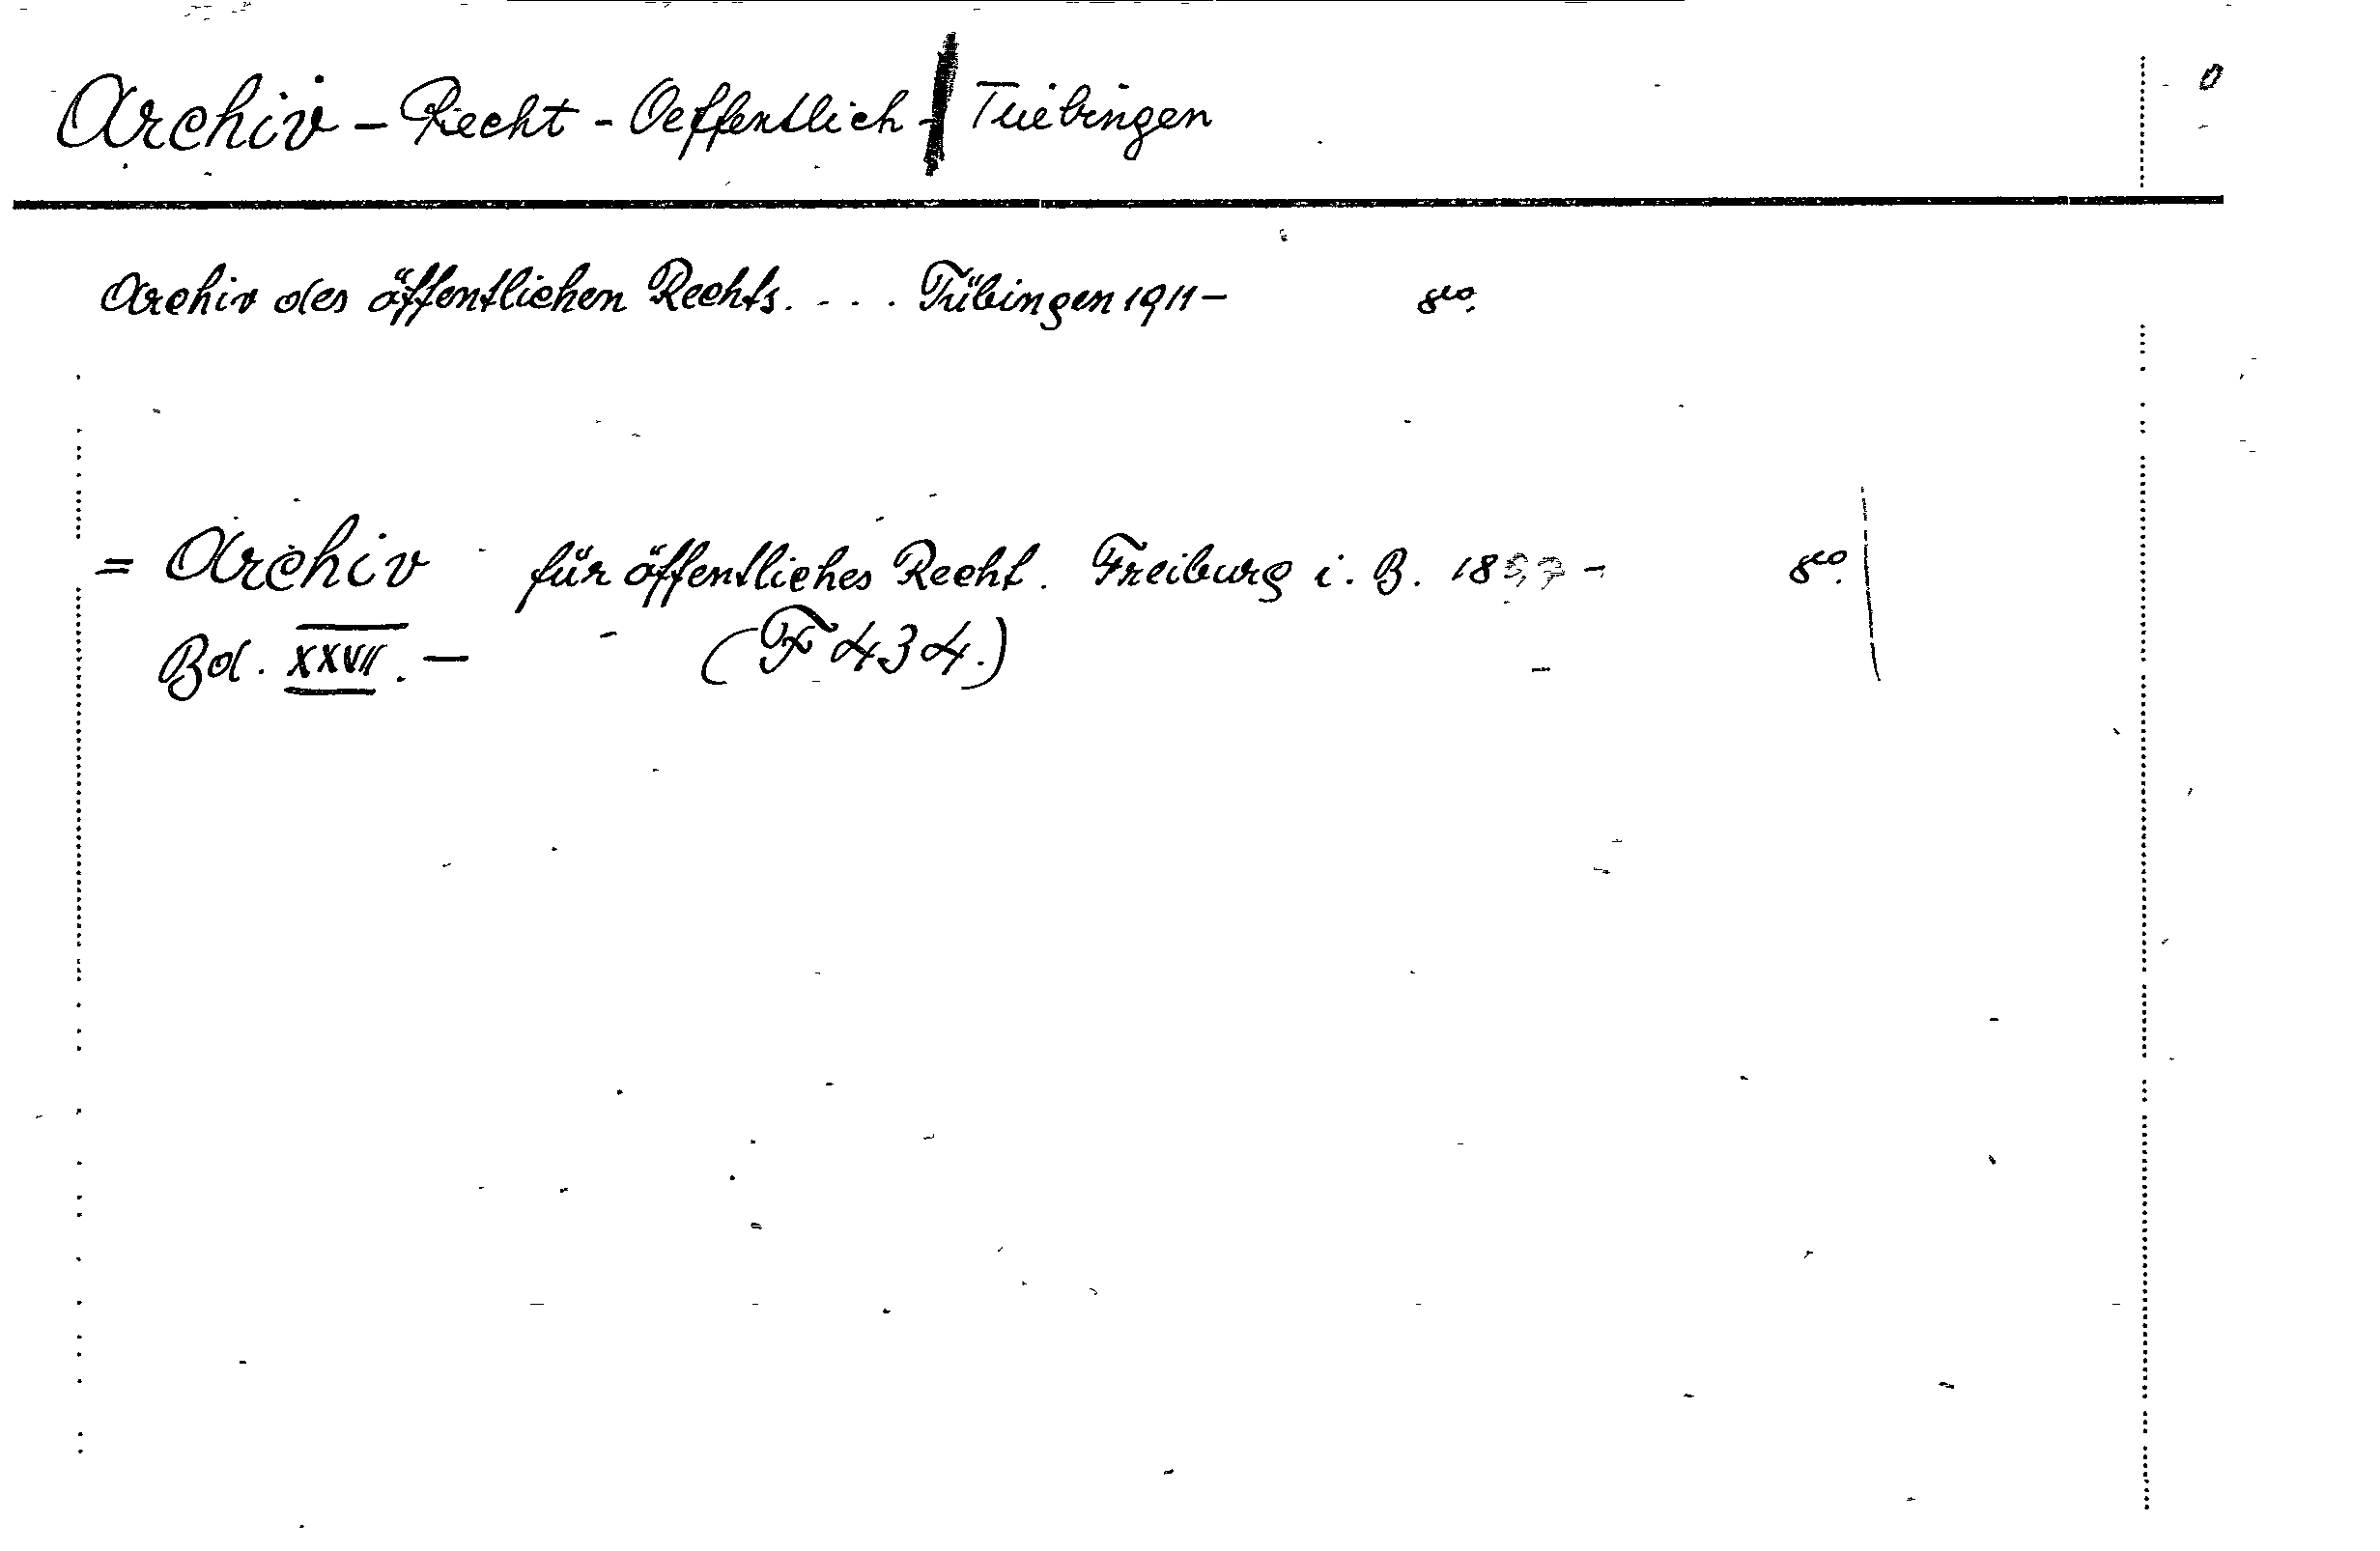 Archiv - Recht - Oeffentlich - Tuebingen
Archiv des öffentlichen Rechts. . . . Tübingen 1911 - 8vo.
= Archiv für öffentliches Recht. Freiburg i. B. 18 - 8vo.
Bd. XXVII. - (F 434.)